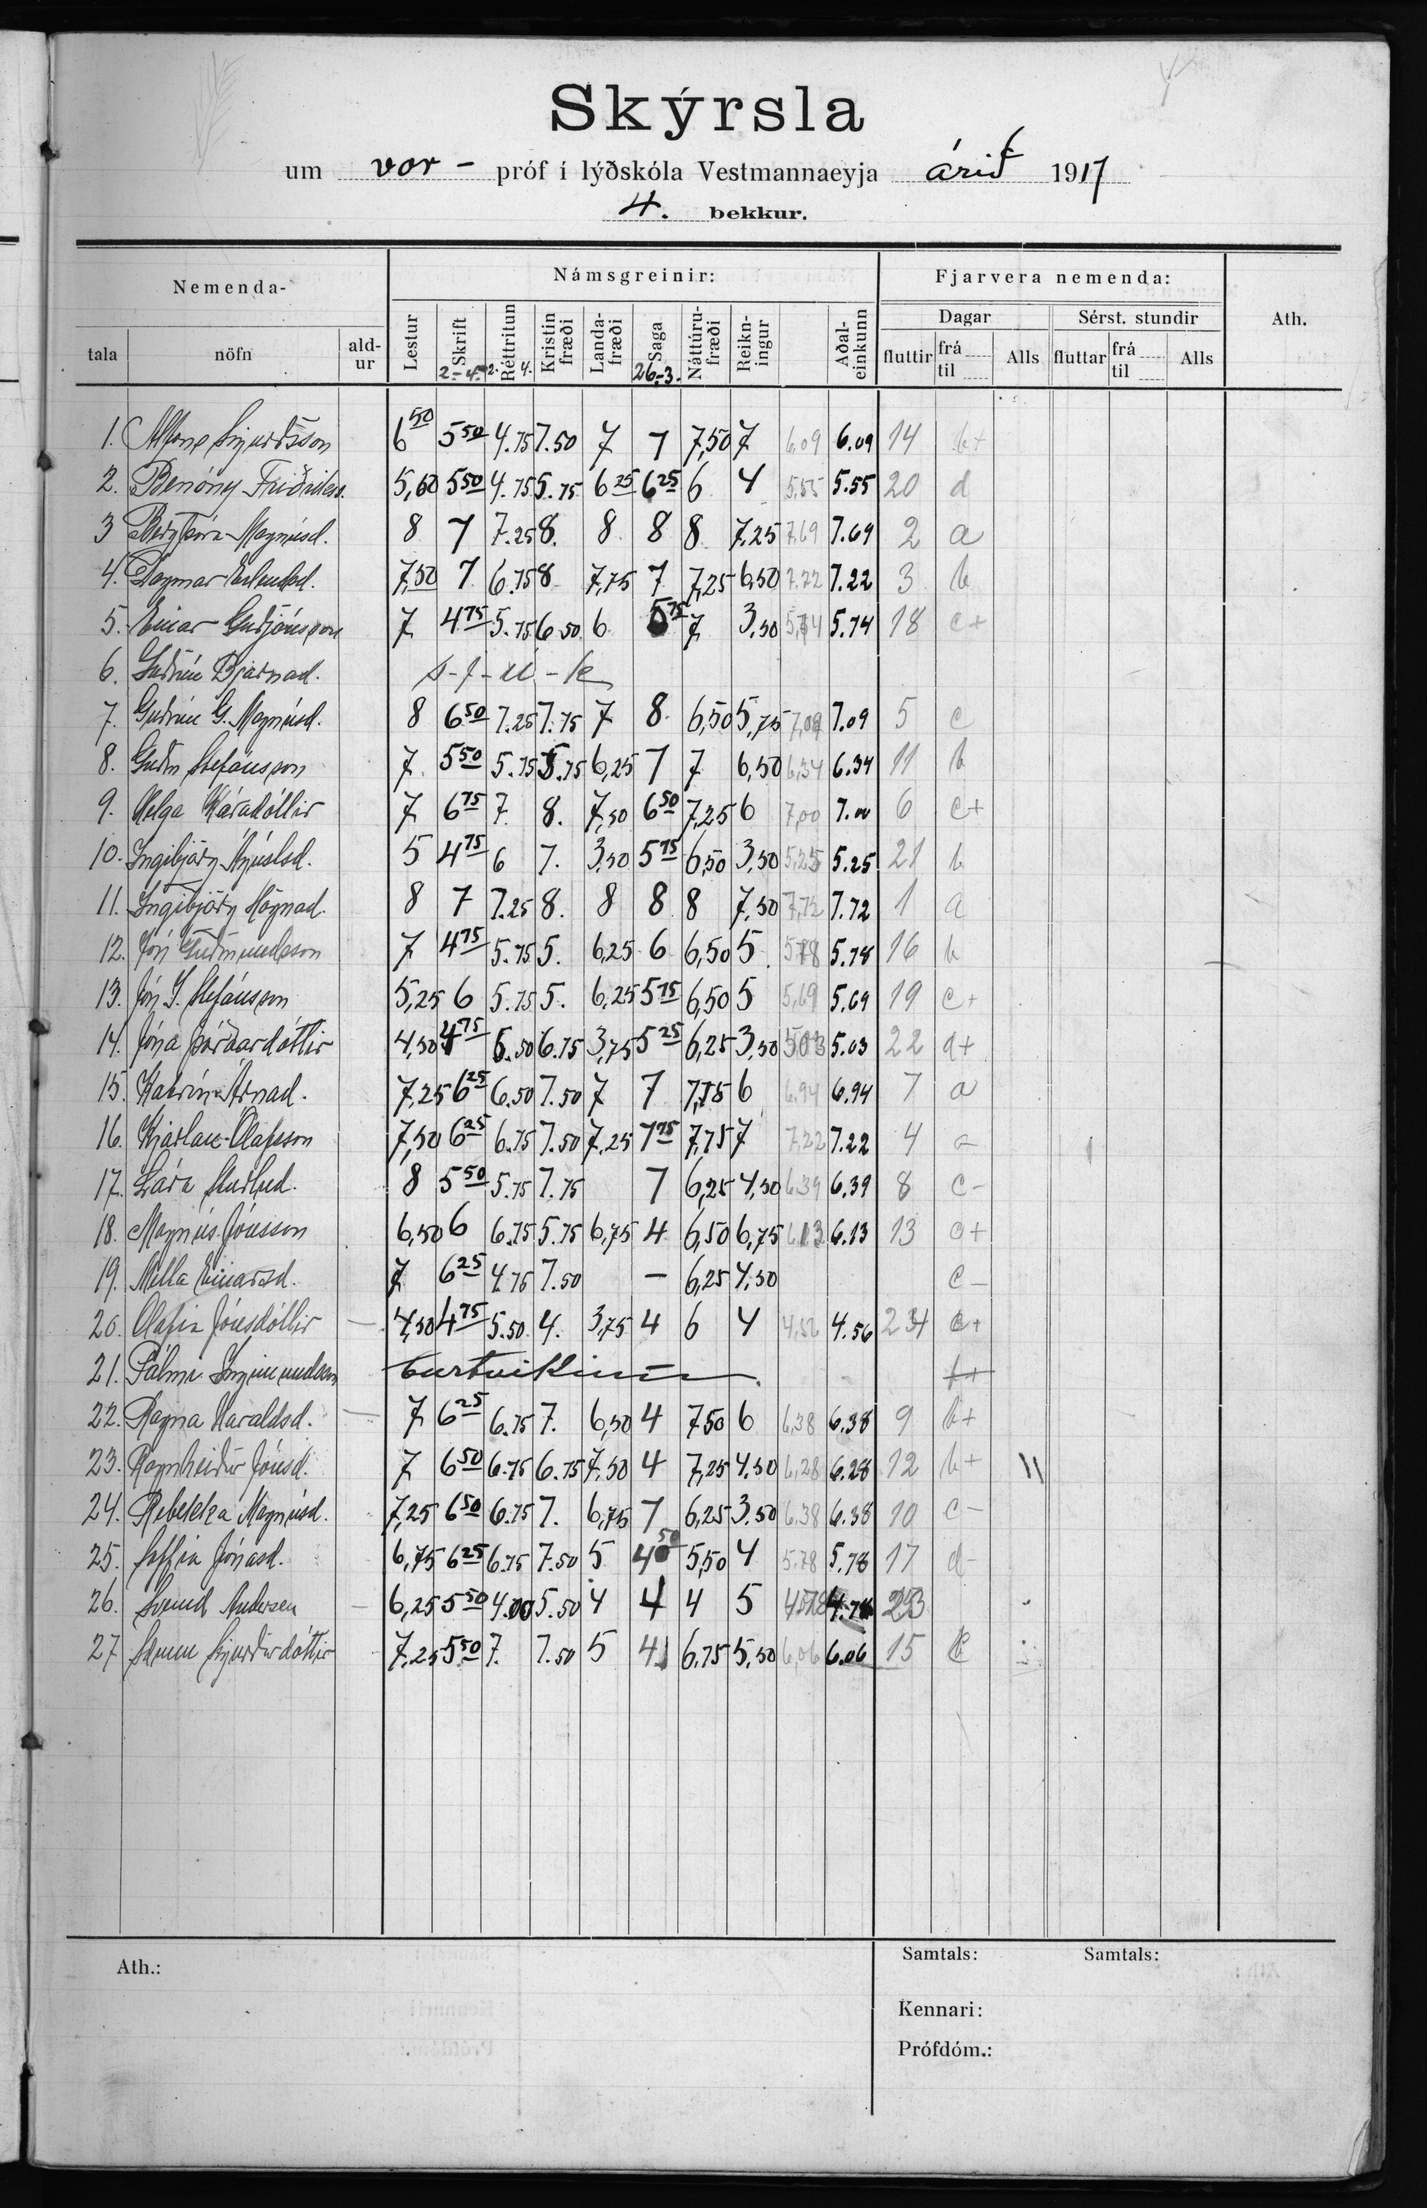 Skýrsla
um vor- próf í lýðskóla Vestmannaeyja árið 1917
4. bekkur.
Nemenda- Námsgreinir: Fjarvera nemenda: Ath.
Dagar Sérst. stundir
tala nöfn ald-ur Lestur Skrift Réttritun Kristin fræði Landa-fræði Saga Náttúru-fræði Reikn-ingur Aðal-einkunn fluttir frá til Alls fluttar frá til Alls
2-4. 2. 4. 26-3.
1. Sigurðsson 6 50 5 50 4.75 7.50 7 7 7,50 7 6,09 6.09 14 b+
2. Benóný Friðriks. 5,60 5 50 4.75 5.75 6 25 6 25 6 4 5,55 5.55 20 d
3 Bergþóra Magnúsd. 8 7 7.25 8. 8 8 8 7,25 7,69 7.69 2 a
4. Dagmar Erlendsd. 7,50 7 6.75 8 7,75 7 7,25 6,50 7,22 7.22 3 b
5. Einar Guðjónsson 7 4 75 5.75 6.50 6 5 75 7 3,50 5,74 5.74 18 c+
6. Guðrún Bjarnad. s-j-ú-k
7. Guðrún G. Magnúsd. 8 6 50 7.25 7.75 7 8 6,50 5,75 7,09 7.09 5 c
8. Guðm Stefánsson 7 5 50 5.75 5.75 6,25 7 7 6,50 6,34 6.34 11 b
9. Helga Káradóttir 7 6 75 7. 8. 7,50 6 50 7,25 6 7,00 7.00 6 c+
10. Ingibjörg Ágústsd. 5 4 75 6 7. 3,50 5 75 6,50 3,50 5,25 5.25 21 b
11. Ingibjörg Högnad. 8 7 7.25 8. 8 8 8 7,50 7,72 7.72 1 a
12. Jón Guðmundsson 7 4 75 5.75 5. 6,25 6 6,50 5 5,78 5.78 16 b
13. Jón G. Stefánsson 5,25 6 5.75 5. 6,25 5 75 6,50 5 5,69 5.69 19 c+
14. Jóna Þórðardóttir 4,50 4 75 5.50 6.75 3,75 5 25 6,25 3,50 5,03 5.03 22 a+
15. Katrín Árnad. 7,25 6 25 6.50 7.50 7 7 7,75 6 6,94 6.94 7 a
16. Kjartan Ólafsson 7,50 6 25 6.75 7.50 7,25 7 75 7,75 7 7,22 7.22 4 a
17. Lára Sturlud. 8 5 50 5.75 7.75 7 6,25 4,50 6,39 6.39 8 c-
18. Magnús Jónsson 6,50 6 6.75 5.75 6,75 4 6,50 6,75 6,13 6.13 13 a+
19. Milla Einarsd. 7 6 25 4.75 7.50 - 6,25 4,50 c-
20. Ólafía Jónsdóttir 4,50 4 75 5.50 4. 3,75 4 6 4 4,56 4.56 24 c+
21. Pálmi Ingimundarson burtvikinn b+
22. Ragna Haraldsd. 7 6 25 6.75 7. 6,50 4 7,50 6 6,38 6.38 9 b+
23. Ragnheiður Jónsd. 7 6 50 6.75 6.75 7,50 4 7,25 4,50 6,28 6.28 12 b+ 11
24. Rebekka Magnúsd. 7,25 6 50 6.75 7. 6,75 7 6,25 3,50 6,38 6.38 10 c-
25. Soffía Jónasd. 6,75 6 25 6.75 7.50 5 4 50 5,50 4 5,78 5.78 17 d-
26. Svend Andersen 6,25 5 50 4.00 5.50 4 4 4 5 4,78 4.78 23
27 Sigurðardóttir 7,25 5 50 7. 7.50 5 4 6,75 5,50 6,06 6.06 15
Ath.: Samtals: Samtals:
Kennari:
Prófdóm.: